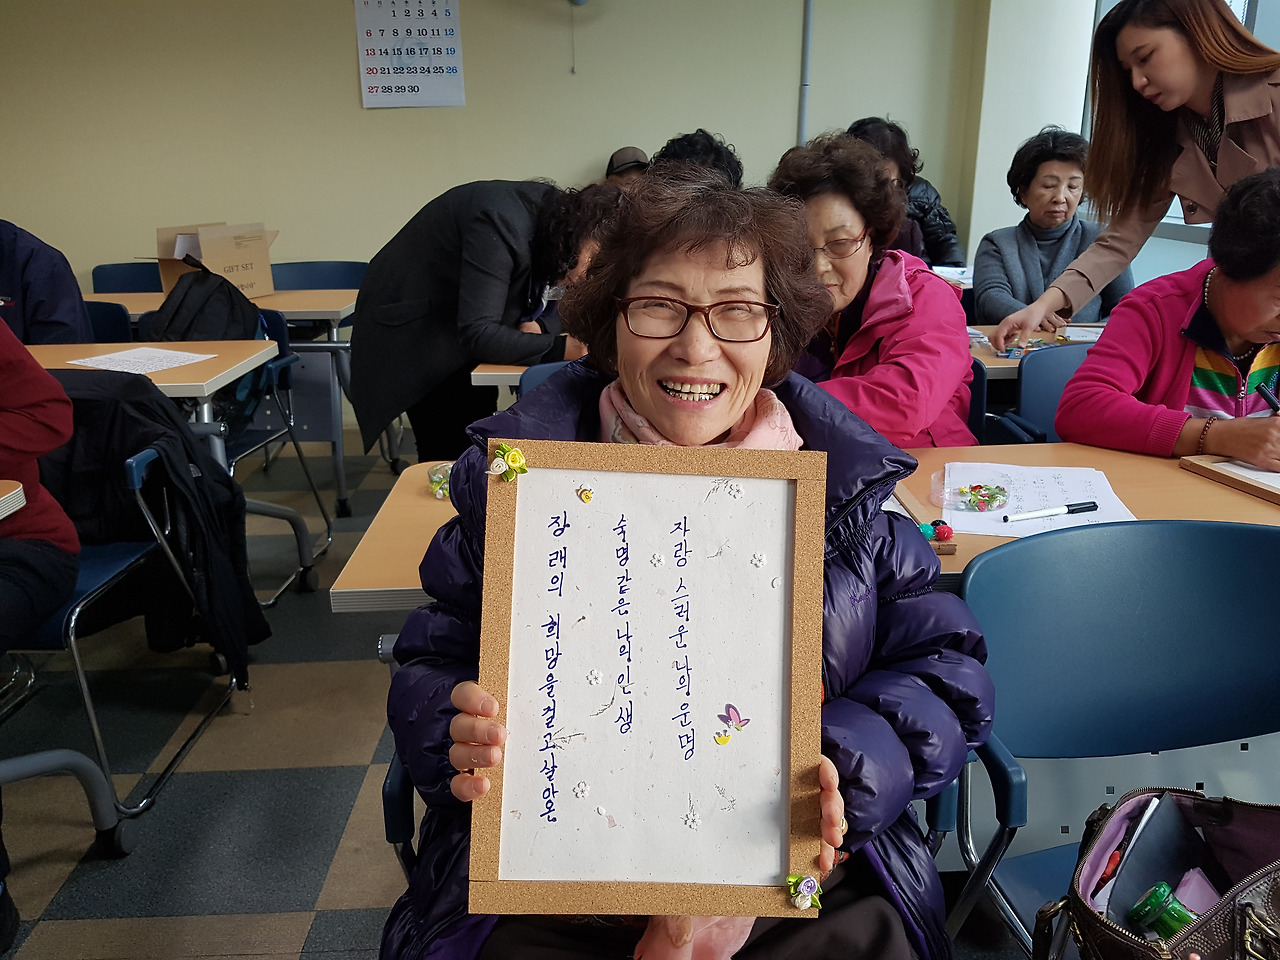 1 2 3 4 5
6 7 8 9 10 11 12
13 14 15 16 17 18 19
20 21 22 23 24 25 26
27 28 29 30
GIFT SET
자랑 스러운 나의 운명
숙명같은 나의 인생
장래의 희망을 걸고 살아온